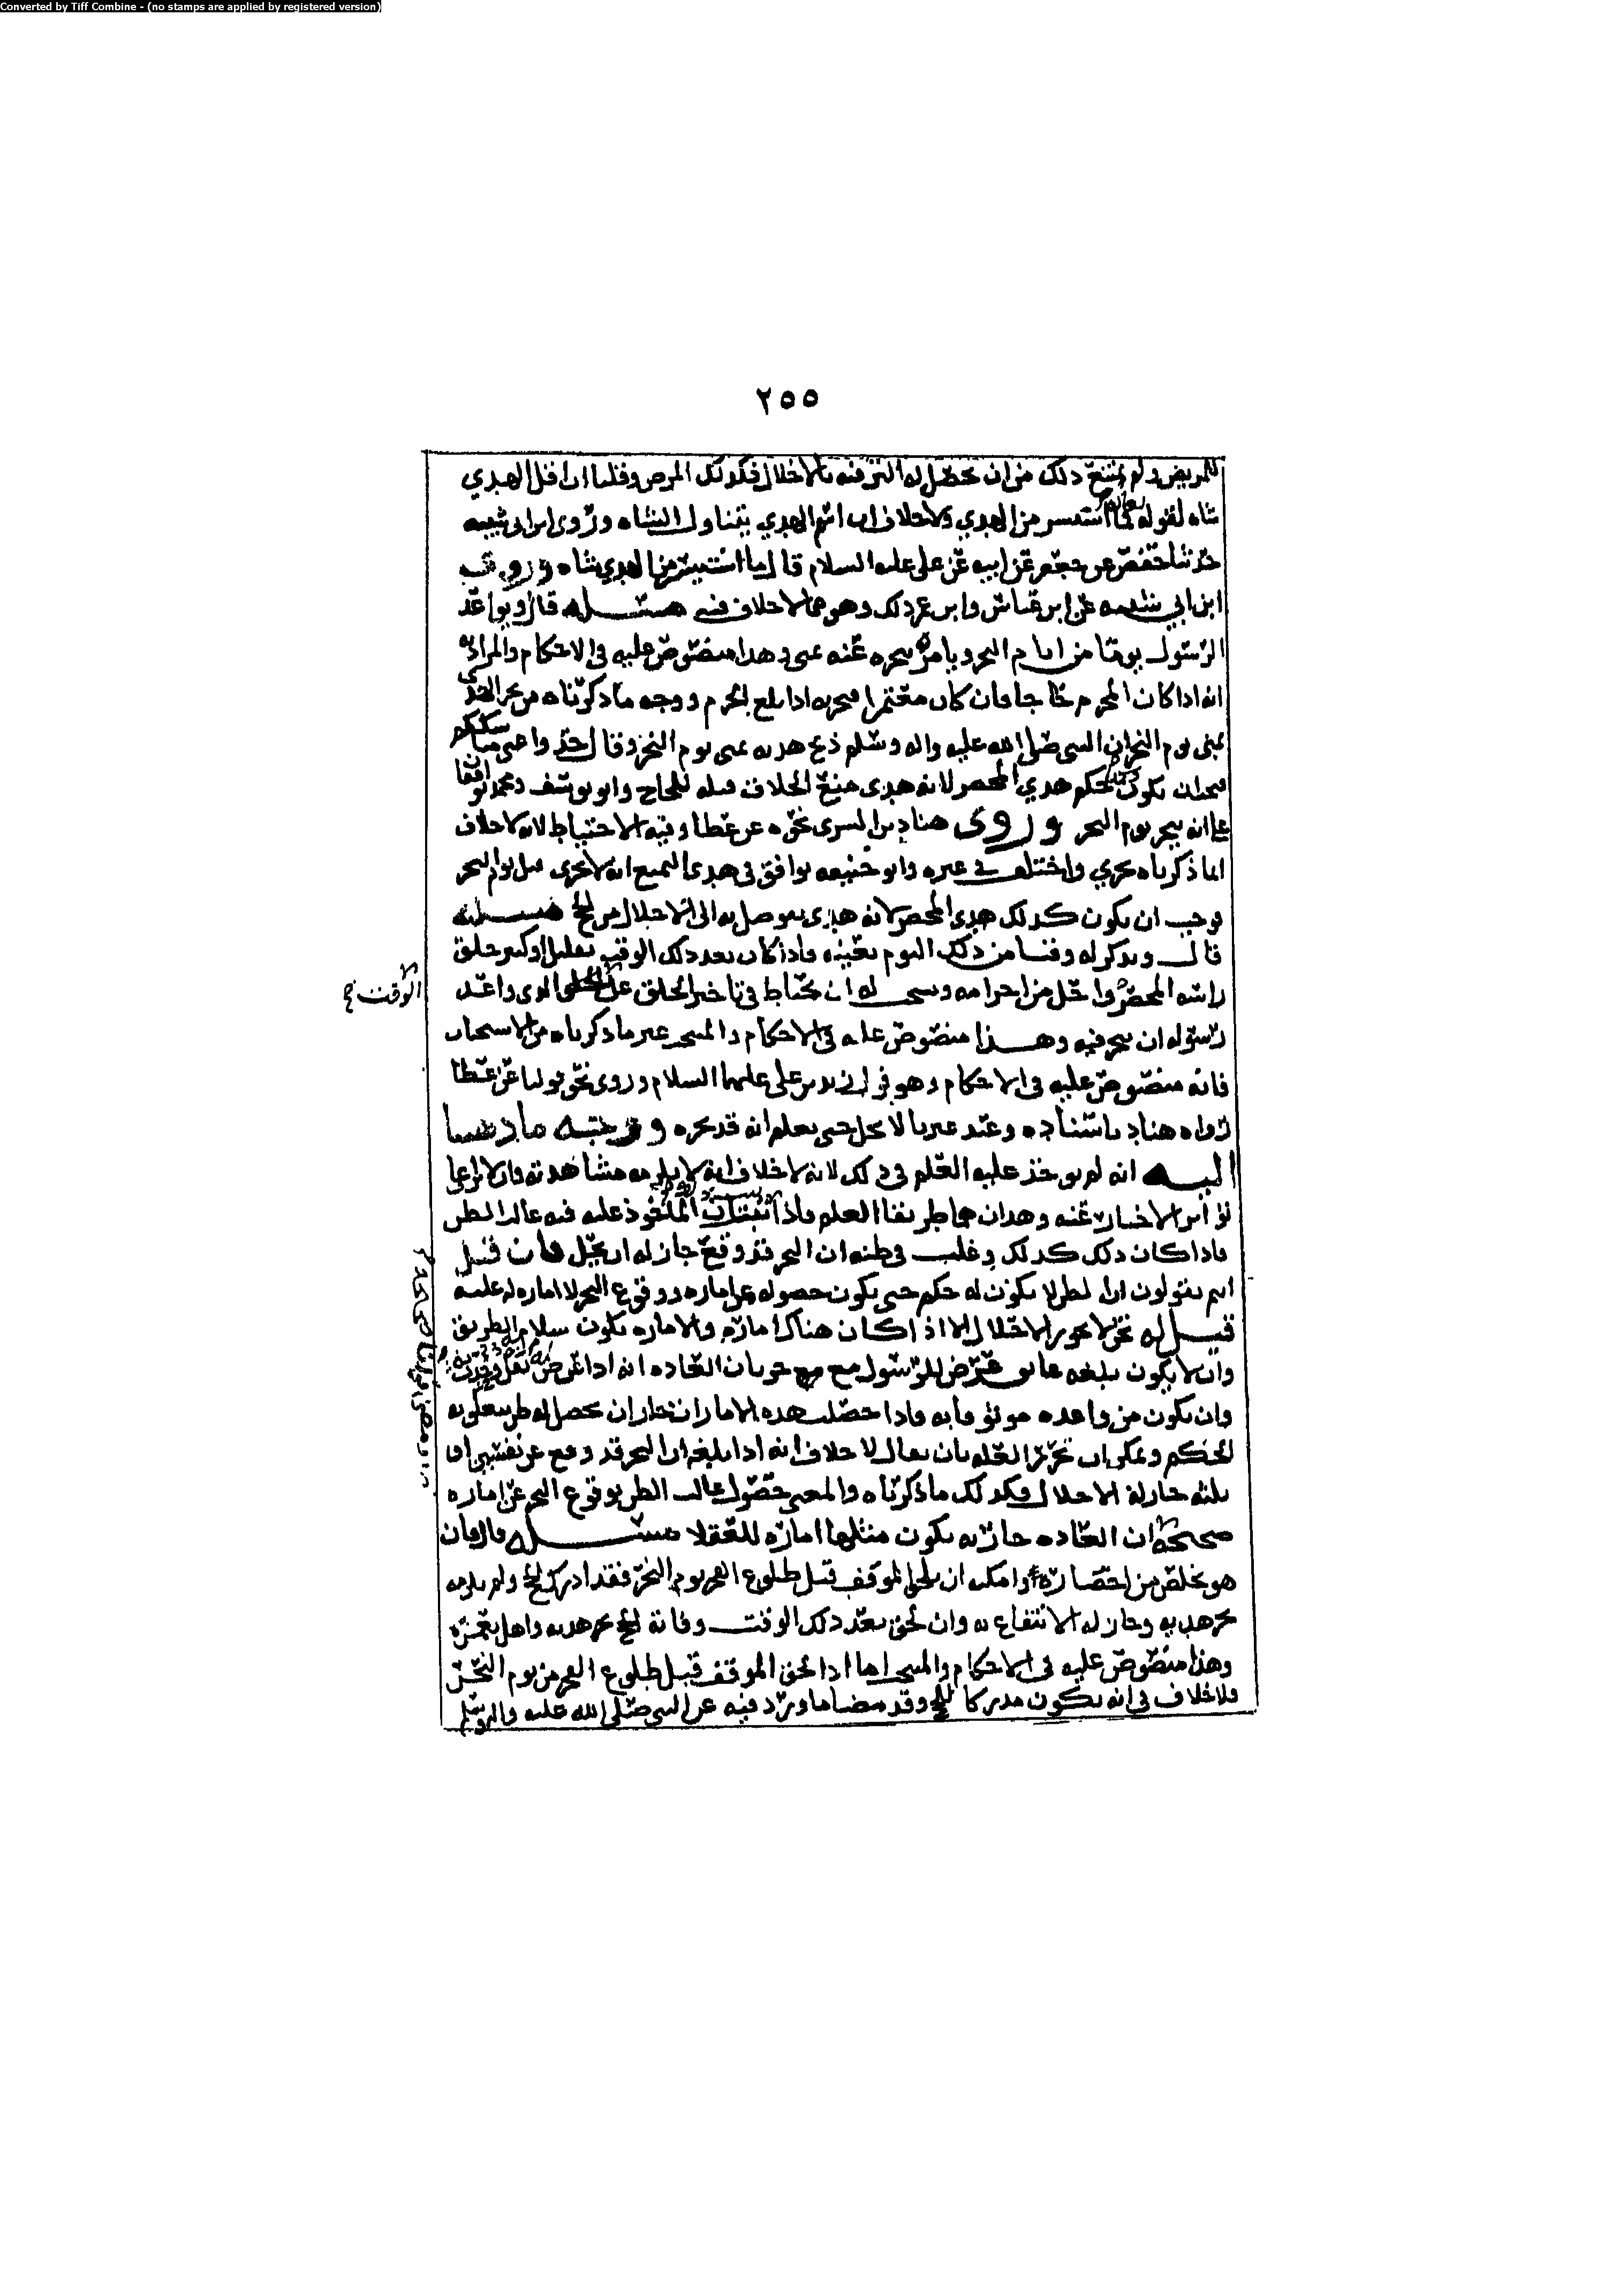 Converted by Tiff Combine - (no stamps are applied by registered version)
٢٥٥
للمريض ولم يمتنع ذلك من ان يحصل له الترفيه بالاحلال فكذلك المرض وقلنا ان اقل الهدي
شاه لقوله تعالى فما استيسر من الهدي ولا خلاف ان اسم الهدي يتناول الشاه وروى ابن ابي شيبه
حدثنا حفص عن جعفر عن ابيه عن علي عليه السلام قال ما استيسر من الهدي شاه وروى
ابن ابي شيبه عن ابن عباس وابن عمر ذلك وهو مما لا خلاف فيه مسئله قال ويواعد
الرسول يوما من ايام النحر ويامره بنحره عنه بمنى وهذا منصوص عليه في الاحكام والمراد به
انه اذا كان المحرم حاجا فان كان معتمرا فنحره اذا بلغ الحرم ووجه ما ذكرناه من نحر الهدي
بمنى يوم النحر ان النبي صلى الله عليه واله وسلم ذبح هديه بمنى يوم النحر وقال خذوا عني مناسككم
فيجب ان يكون كذلك حكم هدي المحصر لانه هدي منع الحلاق قبله للحاج وابو يوسف ومحمد يوافقا
على انه ينحر يوم النحر وروى هناد بن السري نحوه عن عطا وفيه الاحتياط لانه لا خلاف
ان ما ذكرناه يجزي واختلف في غيره وابو حنيفه يوافق في هدي التمتع انه لا يجزي قبل يوم النحر
فوجب ان يكون كذلك هدي المحصر لانه هدي يتوصل به الى الاحلال من الحج مسئله
قال ويذكر له وقتا من ذلك اليوم بعينه فاذا كان بعد ذلك الوقت بقليل او كثير حلق
راسه المحصر واحل من احرامه ويستحب له ان يحتاط في تاخير الحلق عن الوقت الذي واعد
الوقت
رسوله ان ينحر فيه وهذا منصوص عليه في الاحكام والمنتخب غير ما ذكرناه من الاستحباب
فانه منصوص عليه في الاحكام وهو قول زيد بن علي عليهما السلام وروى نحو قولنا عن عطا
رواه هناد باسناده وعند غيرنا لا يحل حتى يعلم انه قد نحره ووجه ما ذهبنا
اليه انه لم يوخذ عليه العلم في ذلك لانه لا خلاف انه لا يلزمه مشاهدته ولا
تواتر الاخبار عنه وهذان هما طريقا العلم فاذا ثبت ان الماخوذ عليه فيه غالب الظن
فاذا كان ذلك كذلك وغلب في ظنه ان النحر قد وقع جاز له ان يحل فان قيل
انتم تقولون ان الظن لا يكون له حكم حتى يكون حصوله عن اماره ووقوع النحر لا اماره له عليه
قيل له نحن لا نجوز الاحلال الا اذا كان هناك اماره والاماره تكون سلامه الطريق
وان لا يكون بلغه عايق عرض للرسول مع جريان العاده انه اذا عرض نقل
وان يكون من واعده موثوقا به فاذا حصلت هذه الامارات جاز ان يحصل له ظن يتعلق به
الحكم ويمكن ان نحرر العله بان يقال لا خلاف انه اذا بلغه ان النحر قد وقع عن نفسين او
ثلثه جاز له الاحلال فكذلك ما ذكرناه والمعنى حصول غالب الظن بوقوع النحر عن اماره
صحيحه لان العاده جاريه بكون مثلها اماره للعقلا مسئله قال فان
هو تخلص من احصاره وامكنه ان يلحق الموقف قبل طلوع الفجر يوم النحر فقد ادرك الحج ولم يلزمه
نحر هديه وجاز له الانتفاع به وان لحق بعد ذلك الوقت وفاته الحج نحر هديه واهل بعمره
وهذا منصوص عليه في الاحكام والمنتخب اما اذا لحق الموقف قبل طلوع الفجر من يوم النحر
فلا خلاف في انه يكون مدركا للحج وقد مضا ما ورد فيه عن النبي صلى الله عليه واله وسلم